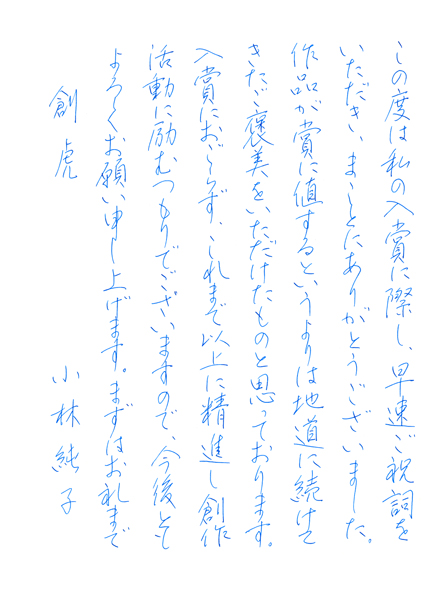 この度は私の入賞に際し、早速ご祝詞を
いただき、まことにありがとうございました。
作品が賞に値するというよりは地道に続けて
きたご褒美をいただけたものと思っております。
入賞におごらず、これまで以上に精進し創作
活動に励むつもりでございますので、今後とも
よろしくお願い申し上げます。まずはお礼まで
創虎 小林純子